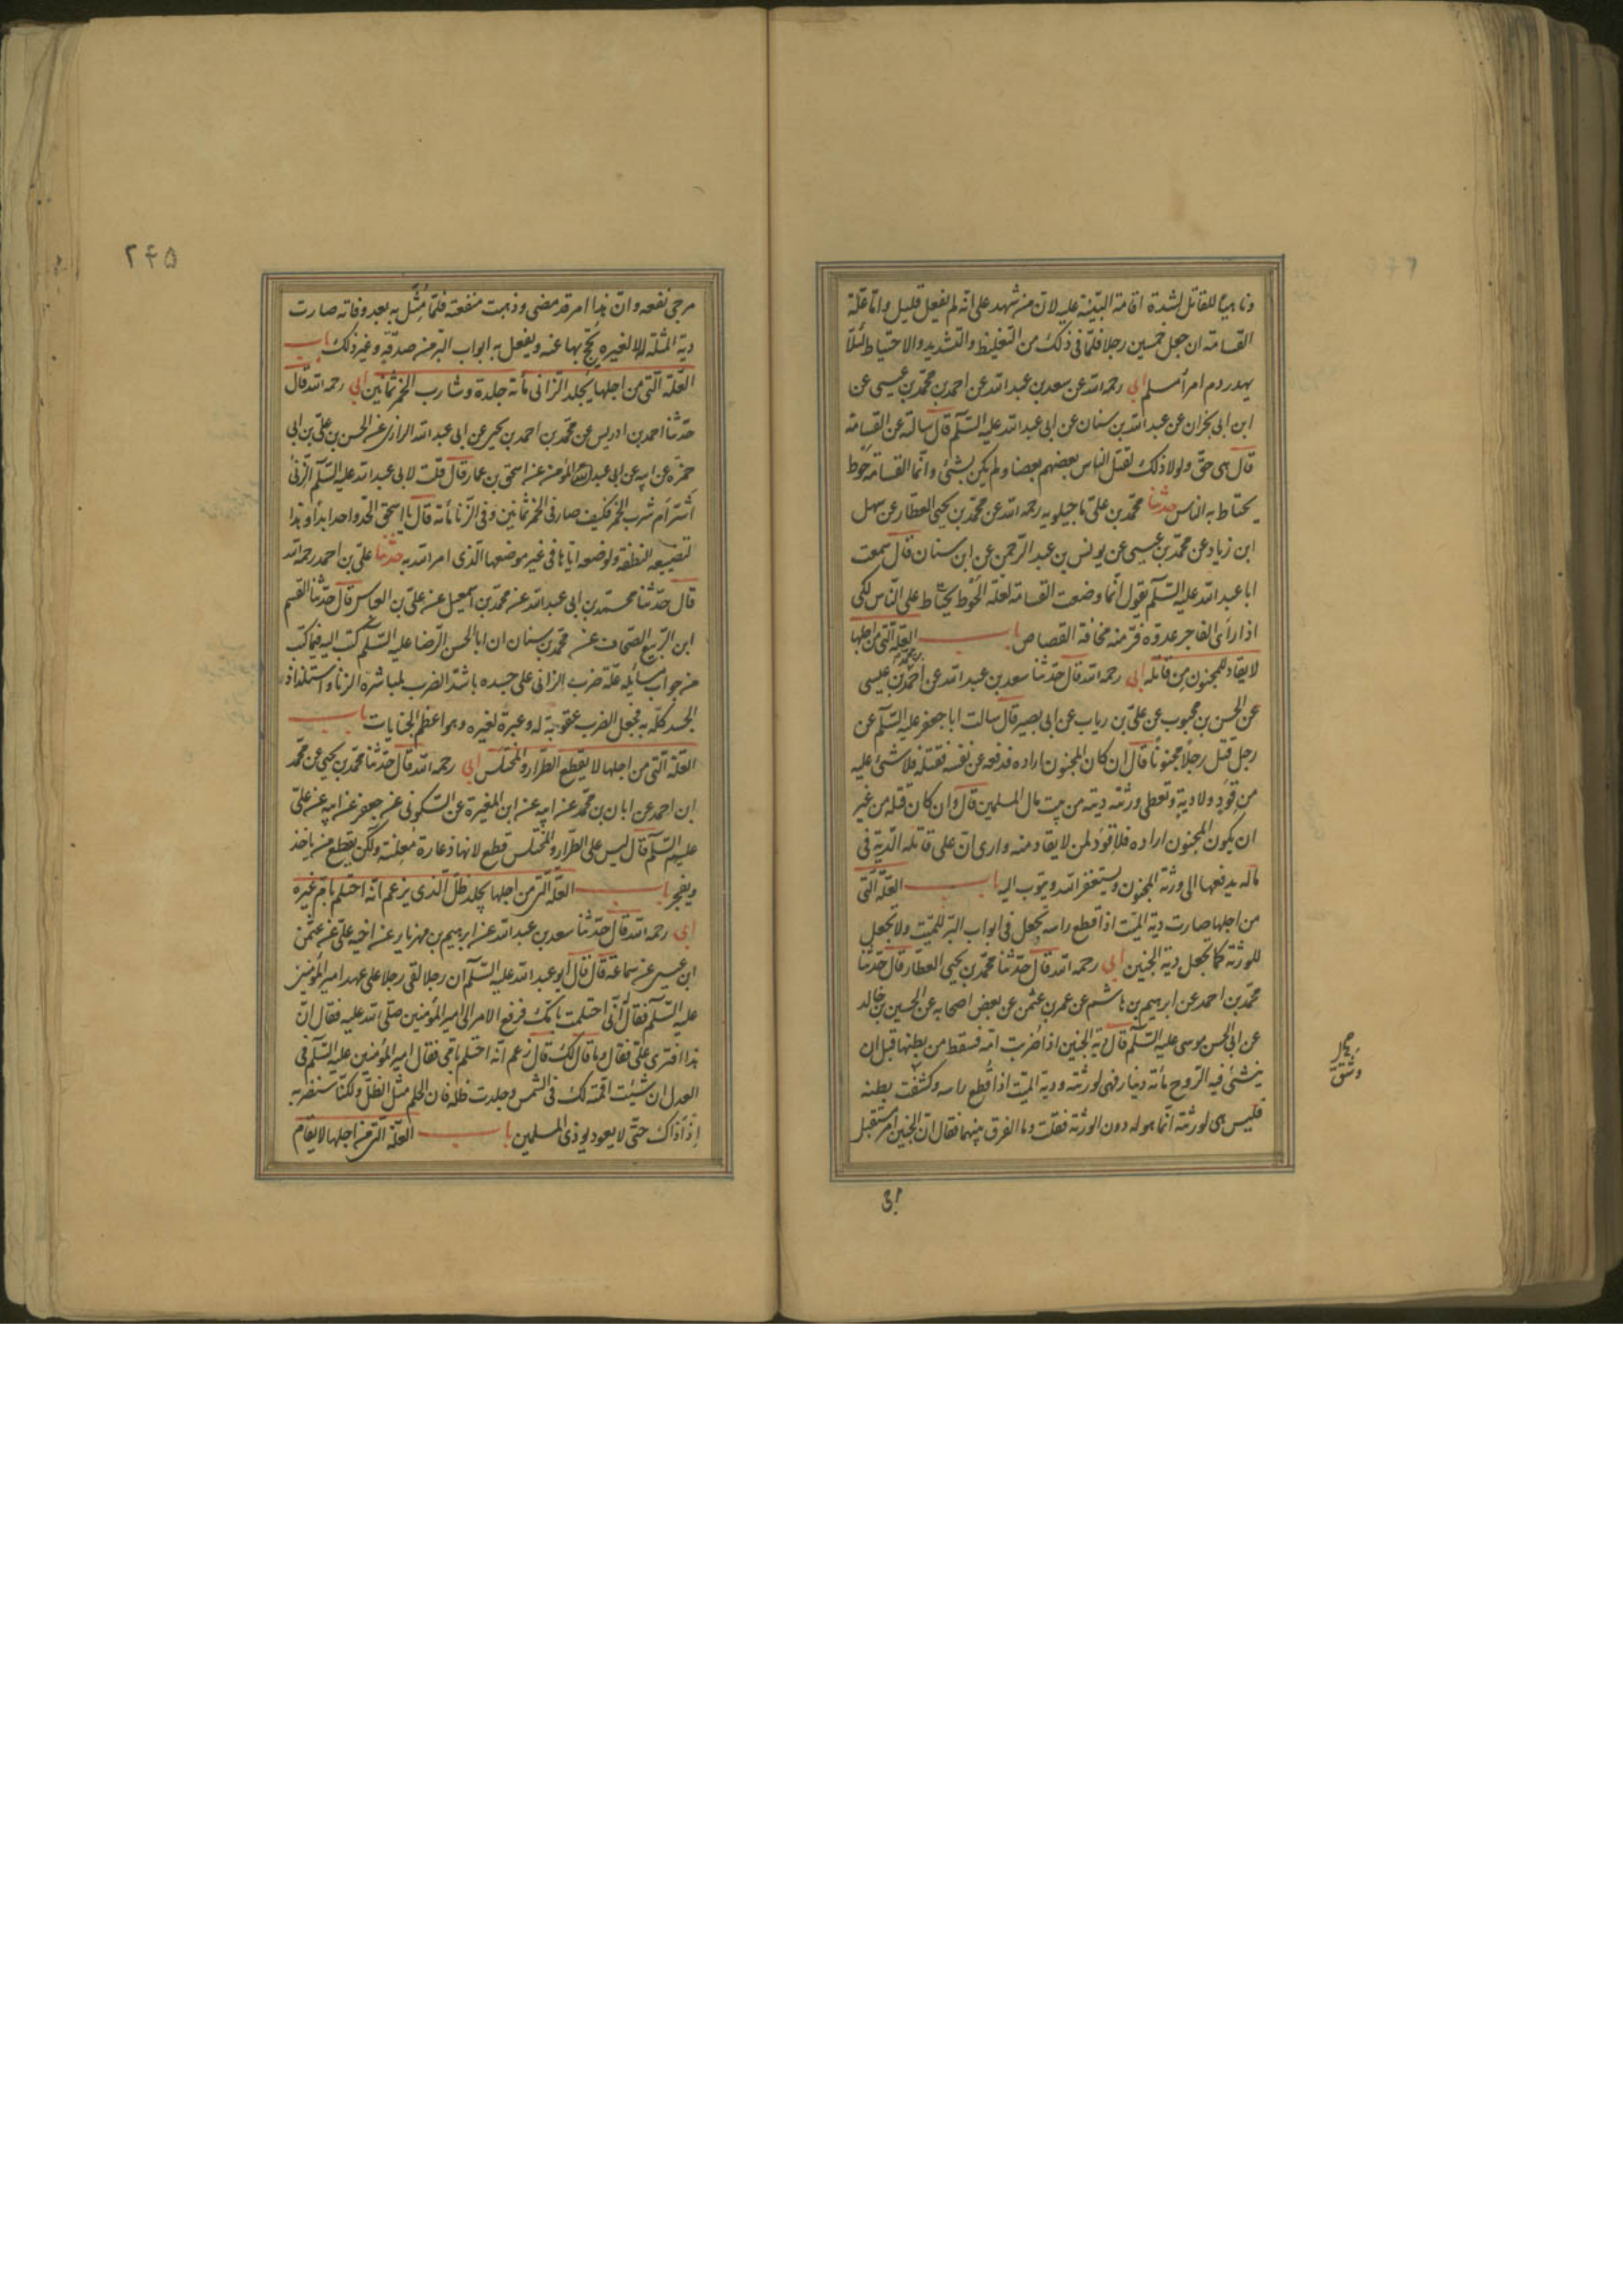 وناهيًا للقاتل لشدة اقامة البيّنة عليه لانّ من شهد على انه لم يفعل قليل وامّا علّة
القسامة ان جعل خمسين رجلا فلمّا فى ذلك من التغليظ والتشديد والاحتياط لئلّا
يهدر دم امرأ مسلم ابى رحمه الله عن سعد بن عبد الله عن احمد بن محمّد بن عيسى عن
ابن ابى نجران عن عبد الله بن سنان عن ابى عبد الله عليه السّلم قال سالته عن القسامة
قال هى حقّ ولولا ذلك لقتل الناس بعضهم بعضا ولم يكن بشئ وانّما القسامة حوط
يحتاط به الناس حدثنا محمّد بن على ماجيلويه رحمه الله عن محمّد بن يحيى العطار عن سهل
ابن زياد عن محمّد بن عيسى عن يونس بن عبد الرّحمن عن ابن سنان قال سمعت
ابا عبد الله عليه السّلم يقول انّما وضعت القسامة لعلة الحَوْط يحتاط على النّاس لكى
اذا رأى الفاجر عدوّه فرّ منه مخافة القصاص باب العلّة الّتى من اجلها
لا يقاد للمجنون من قاتله ابى رحمه الله قال حدّثنا سعد بن عبد الله عن احمد بن محمد بن عيسى
عن الحسن بن محبوب عن علىّ بن رياب عن ابى بصير قال سالت ابا جعفر عليه السّلم عن
رجل قتل رجلا مجنونًا قال ان كان المجنون اراده فدفعه عن نفسه فقتله فلا شئ عليه
من قَوَدٍ ولا ديةٍ وتعطى ورثته ديته من بيت مال المسلمين قال وان كان قتله من غير
ان يكون المجنون اراده فلا قَوَد لمن لا يقاد منه وارى انّ على قاتله الدّية فى
ماله يدفعها الى ورثة المجنون ويستغفر الله ويتوب اليه باب العلّة الّتى
من اجلها صارت دية الميّت اذا قطع راسه تجعل فى ابواب البّر للميّت ولا تجعل
للورثة كما تجعل دية الجنين ابى رحمه الله قال حدّثنا محمّد بن يحيى العطار قال حدّثنا
محمّد بن احمد عن ابرهيم بن هاشم عن عمر بن عثمن عن بعض اصحابه عن الحسين بن خالد
عن ابى الحسن موسى عليه السّلم قال دية الجنين اذا ضُربت امّه فسقط من بطنها قبل ان
ينشئ فيه الرّوح مأة دينار فهى لورثته ودية الميّت اذا قُطع راسه وكشفت بطنه
فليس هى لورثته انّما هو له دون الورثة فقلت وما الفرق بينهما فقال انّ الجنين امر مستقبل
مرجى نفعه وانّ هذا امر قد مضى وذهبت منفعته فلمّا مُثّل به بعد وفاته صارت
دية المثلة له لا لغيره يُحّج بها عنه ويفعل به ابواب البرّ من صدقةٍ وغير ذلك باب
العّلة الّتى من اجلها يُجلد الزّانى مأة جلدة وشارب الخمر ثمانين ابى رحمه الله قال
حدّثنا احمد بن ادريس عن محمّد بن احمد بن يحيى عن ابى عبد الله الرازى عن الحسن بن علىّ بن ابى
حمزة عن ابيه عن ابى عبد الله المؤمن عن اسحق بن عمار قال قلت لابى عبد الله عليه السّلم الزّنى
اشرّ ام شرب الخمر فكيف صار فى الخمر ثمانين وفى الزّنا مأة قال يا اسحق الحّد واحد ابدًا وهذا
لتضييعه النطفة ولوضعه اياها فى غير موضعها الّذى امر الله به حدثنا علىّ بن احمد رحمه الله
قال حدّثنا محمّد بن ابى عبد الله عن محمّد بن اسمعيل عن علىّ بن العباس قال حدّثنا القسم
ابن الرّبيع الصّحاف عن محمّد بن سنان ان ابا الحسن الرّضا عليه السّلم كتب اليه فيما كتب
من جواب مسائله علّة ضرب الزانى على جسده باشدّ الضرب لمباشرة الزنا واستلذاذ
الجسد كلّه به فجعل الضرب عقوبة له وعبرة لغيره وهو اعظم الجنايات باب
العلّة الّتى من اجلها لا يقطع الطرّار والمختلس ابى رحمه الله قال حدّثنا محمّد بن يحيى عن محمّد
ابن احمد عن ابان بن محمّد عن ابيه عن ابن المغيرة عن السّكونى عن جعفر عن ابيه عن علىّ
عليهم السّلم قال ليس على الطرّار والمختلس قطع لانها دغارة مُعلنة ولكن يقطع من ياخذ
ويفجر باب العّلة الّتى من اجلها يجلد ظلّ الّذى يزعم انّه احتلم بامّ غيره
ابى رحمه الله قال حدّثنا سعد بن عبد الله عن ابرهيم بن مهزيار عن اخيه علىّ عن عثمن
ابن عيسى عن سماعة قال قال ابو عبد الله عليه السّلم ان رجلا لقى رجلا على عهد امير المؤمنين
عليه السّلم فقال انّى احتلمت بامّك فرفع الامر الى امير المؤمنين صلّى الله عليه فقال انّ
هذا افترى علىّ فقال وما قال لك قال زعم انّه احتلم بامّى فقال امير المؤمنين عليه السّلم فى
العدل ان شئت اقمته لك فى الشمس وجلدت ظلّه فان الحلم مثل الظّل ولكنّا سنضربه
اذ آذاك حتّى لا يعود يوذى المسلمين باب العلّة الّتى من اجلها لا يقام
۲۴۵